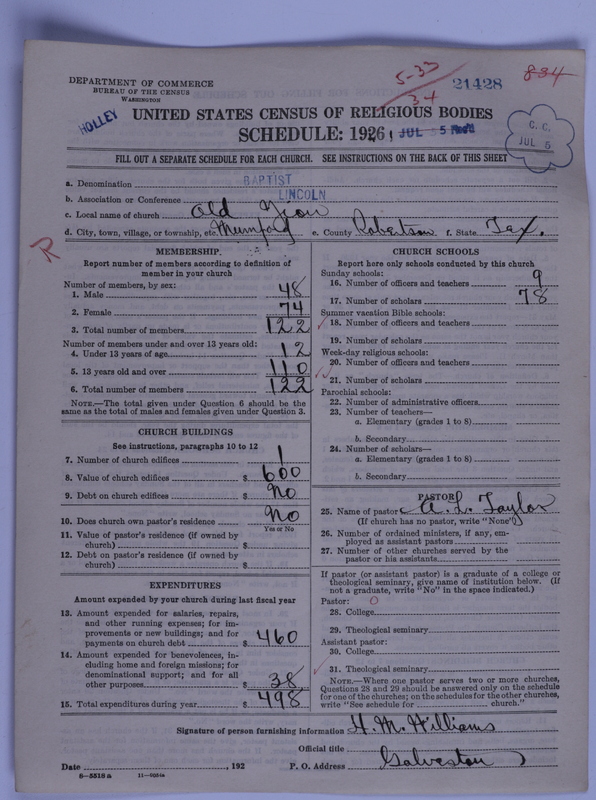 DEPARTMENT OF COMMERCE
BUREAU OF THE CENSUS
WASHINGTON
HOLLEY
5-33
34
21428
834
UNITED STATES CENSUS OF RELIGIOUS BODIES
SCHEDULE: 1926
JUL 5
C. C.
JUL 5
FILL OUT A SEPARATE SCHEDULE FOR EACH CHURCH. SEE INSTRUCTIONS ON THE BACK OF THIS SHEET
a. Denomination BAPTIST
b. Association or Conference LINCOLN
c. Local name of church Old Zion
d. City, town, village, or township, etc. Mumford e. County Robertson f. State Tex.
R
MEMBERSHIP
Report number of members according to definition of member in your church
Number of members, by sex:
1. Male 48
2. Female 74
3. Total number of members 122
Number of members under and over 13 years old:
4. Under 13 years of age 12
5. 13 years old and over 110
6. Total number of members 122
NOTE.—The total given under Question 6 should be the same as the total of males and females given under Question 3.
CHURCH BUILDINGS
See instructions, paragraphs 10 to 12
7. Number of church edifices 1
8. Value of church edifices $ 600
9. Debt on church edifices $ no
10. Does church own pastor's residence no
Yes or No
11. Value of pastor's residence (if owned by church) $
12. Debt on pastor's residence (if owned by church) $
EXPENDITURES
Amount expended by your church during last fiscal year
13. Amount expended for salaries, repairs, and other running expenses; for improvements or new buildings; and for payments on church debt $ 460
14. Amount expended for benevolences, including home and foreign missions; for denominational support; and for all other purposes $ 38
15. Total expenditures during year $ 498
CHURCH SCHOOLS
Report here only schools conducted by this church
Sunday schools:
16. Number of officers and teachers 9
17. Number of scholars 78
Summer vacation Bible schools:
18. Number of officers and teachers
19. Number of scholars
Week-day religious schools:
20. Number of officers and teachers
21. Number of scholars
Parochial schools:
22. Number of administrative officers
23. Number of teachers—
a. Elementary (grades 1 to 8)
b. Secondary
24. Number of scholars—
a. Elementary (grades 1 to 8)
b. Secondary
PASTOR
25. Name of pastor A. L. Taylor
(If church has no pastor, write "None")
26. Number of ordained ministers, if any, employed as assistant pastors
27. Number of other churches served by the pastor or his assistants
If pastor (or assistant pastor) is a graduate of a college or theological seminary, give name of institution below. (If not a graduate, write "No" in the space indicated.)
Pastor: 0
28. College
29. Theological seminary
Assistant pastor:
30. College
31. Theological seminary
NOTE.—Where one pastor serves two or more churches, Questions 28 and 29 should be answered only on the schedule for one of the churches; on the schedules for the other churches, write "See schedule for church."
Signature of person furnishing information H. M. Williams
Official title
Date , 192 P. O. Address Galveston
8-5518a 11-9054a